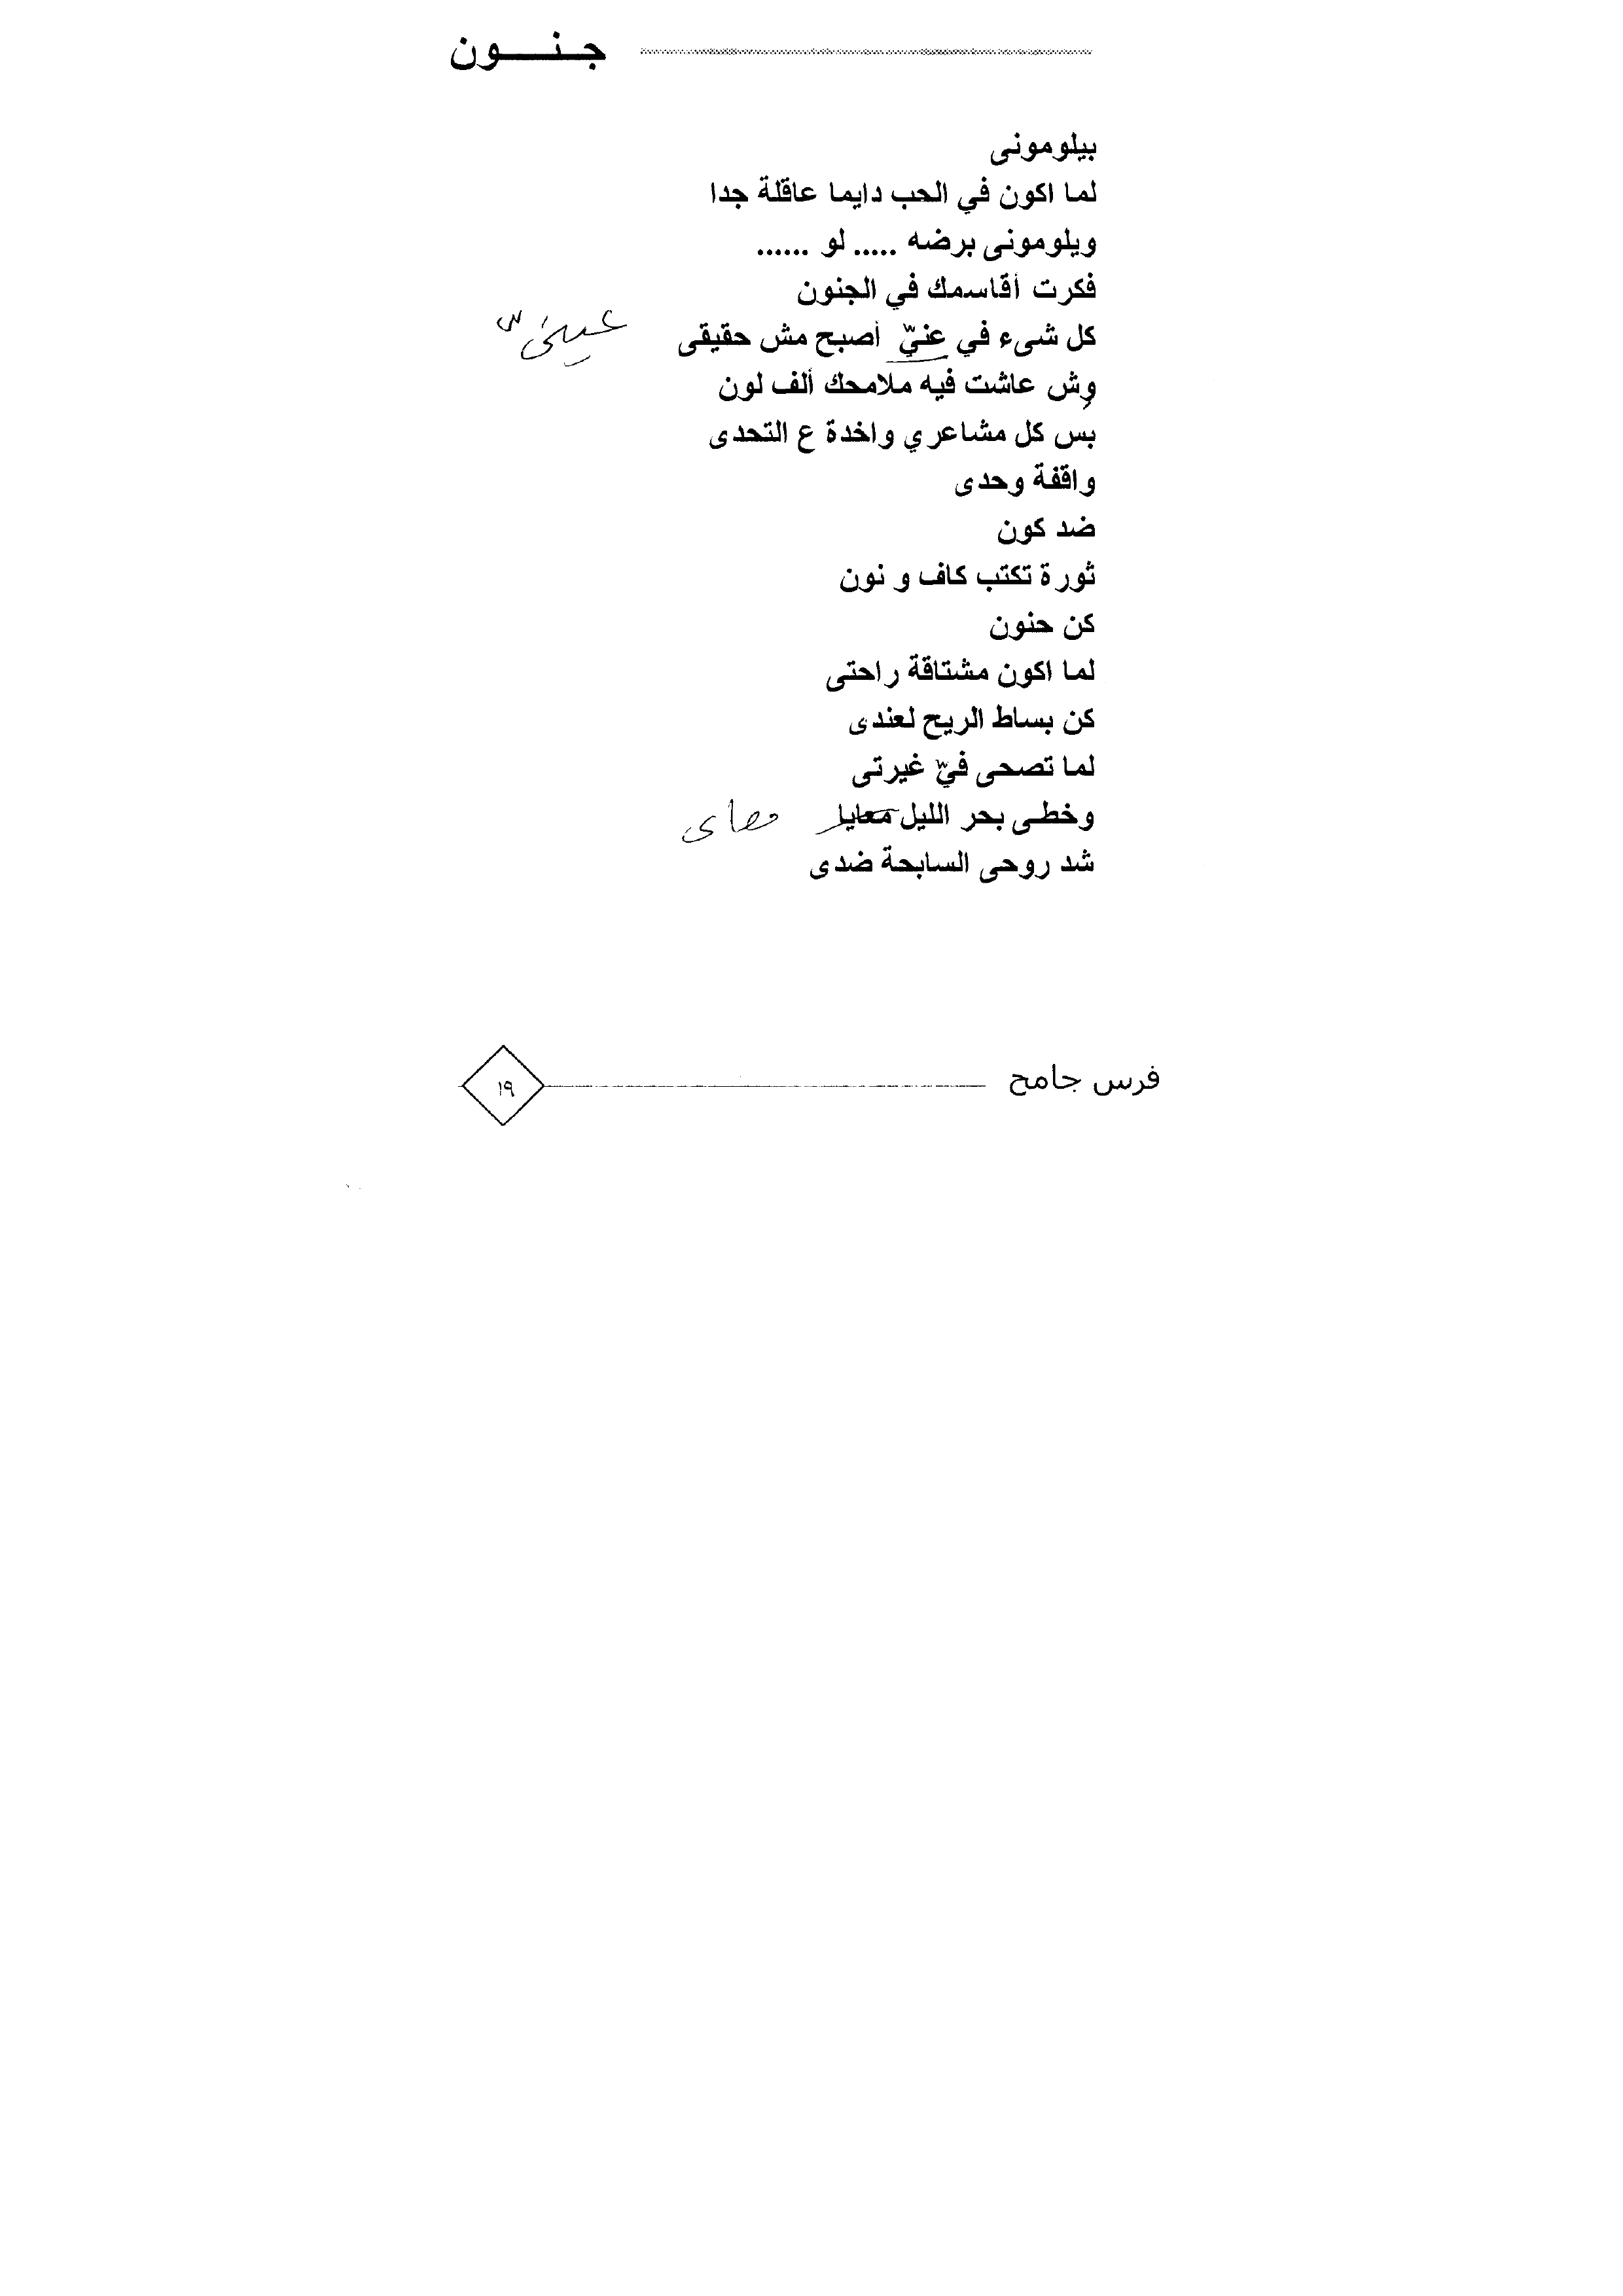 جـنـــــون
بيلومونى
لما اكون في الحب دايما عاقلة جدا
ويلومونى برضه ..... لو ......
فكرت أقاسمك في الجنون
كل شىء في عنيّ أصبح مش حقيقى عينىّ
وش عاشت فيه ملامحك ألف لون
بس كل مشاعري واخدة ع التحدى
واقفة وحدى
ضد كون
ثورة تكتب كاف و نون
كن حنون
لما اكون مشتاقة راحتى
كن بساط الريح لعندى
لما تصحى فيّ غيرتى
وخطى بحر الليل معايا معاى
شد روحى السابحة ضدى
فرس جامح
١٩